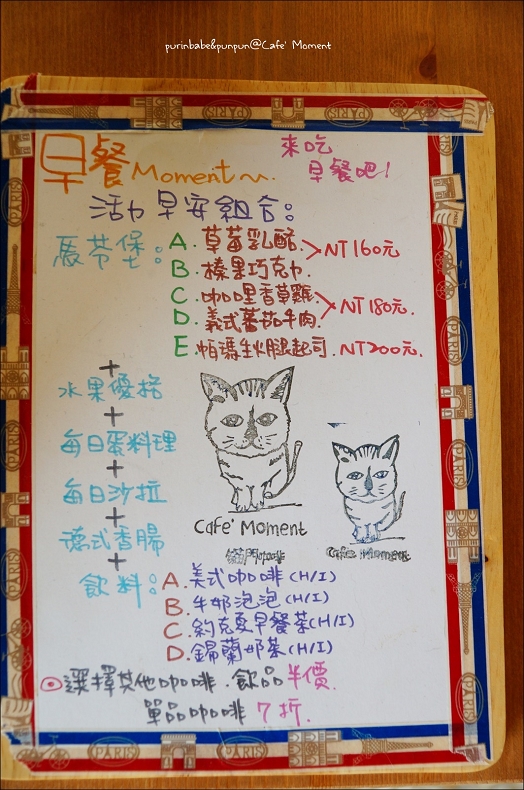 purinbabe&punpun@Cafe' Moment
早餐Moment~.
來吃
早餐吧!
活力早安組合:
馬芬堡:
A. 草莓乳酪
B. 榛果巧克力.
NT 160元
C. 咖哩香草雞
D. 義式蕃茄牛肉.
NT 180元.
E. 帕瑪生火腿起司. NT200元.
+
水果優格
+
每日蛋料理
+
每日沙拉
+
德式香腸
+
Cafe' Moment
貓門咖啡
Cafe Moment
飲料:
A. 美式咖啡 (H/I)
B. 牛奶泡泡 (H/I)
C. 約克夏早餐茶 (H/I)
D. 錫蘭奶茶 (H/I)
⊙選擇其他咖啡.飲品半價.
單品咖啡 7折.
PARIS